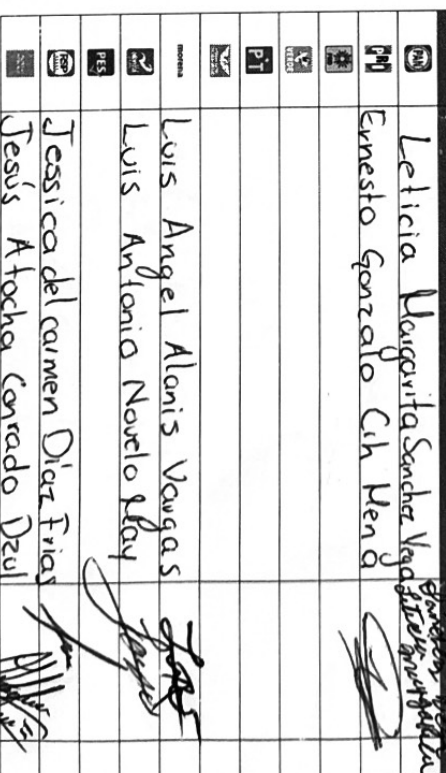 PAN Leticia Margarita Sanchez Vega
PRD Ernesto Gonzalo Cih Mena
VERDE
PT
morena Luis Angel Alanis Vargas
Luis Antonio Novelo May
PES
RSP Jessica del carmen Díaz Frias
Jesús Atocha Conrado Dzul